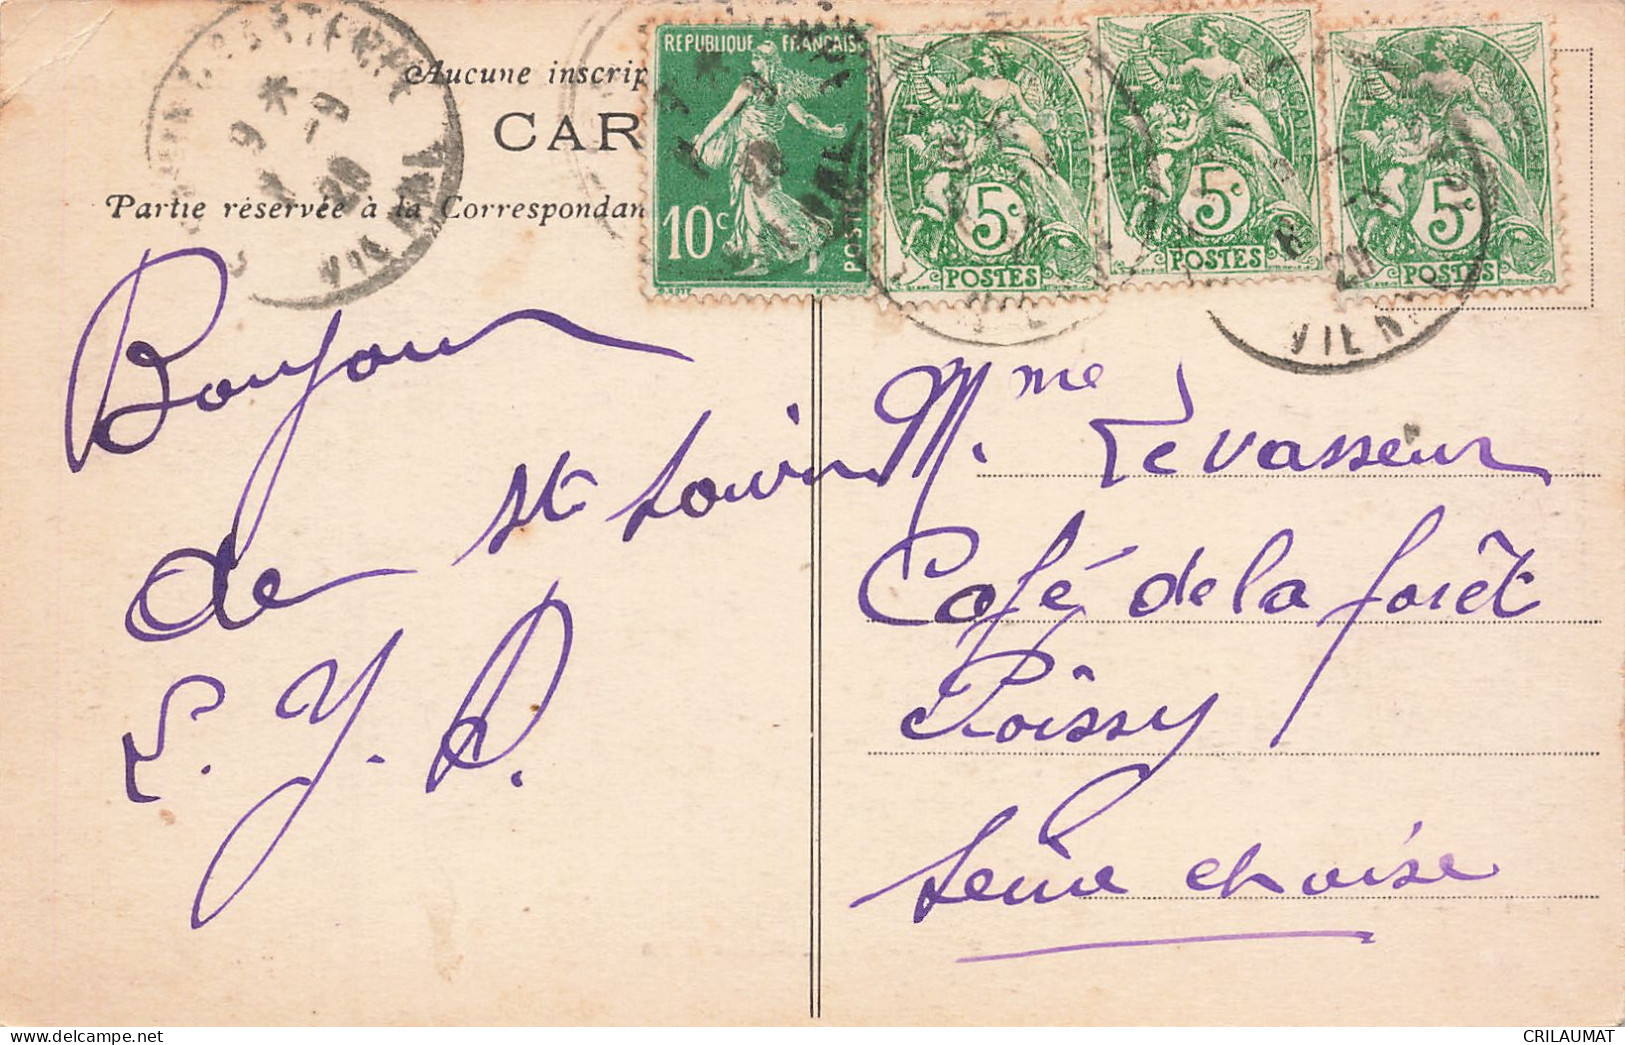 Aucune inscrip
CAR
Partie réservée à la Correspondan
RÉPUBLIQUE FRANÇAISE
10c
POSTES
5c
POSTES
5c
POSTES
5c
POSTES
9 * -9
20
VIENNE
20
VIEN
Bonjour
de St Savin
L. Y. D.
Mme Levasseur
Café de la forêt
Poissy
Seine et oise
CRILAUMAT